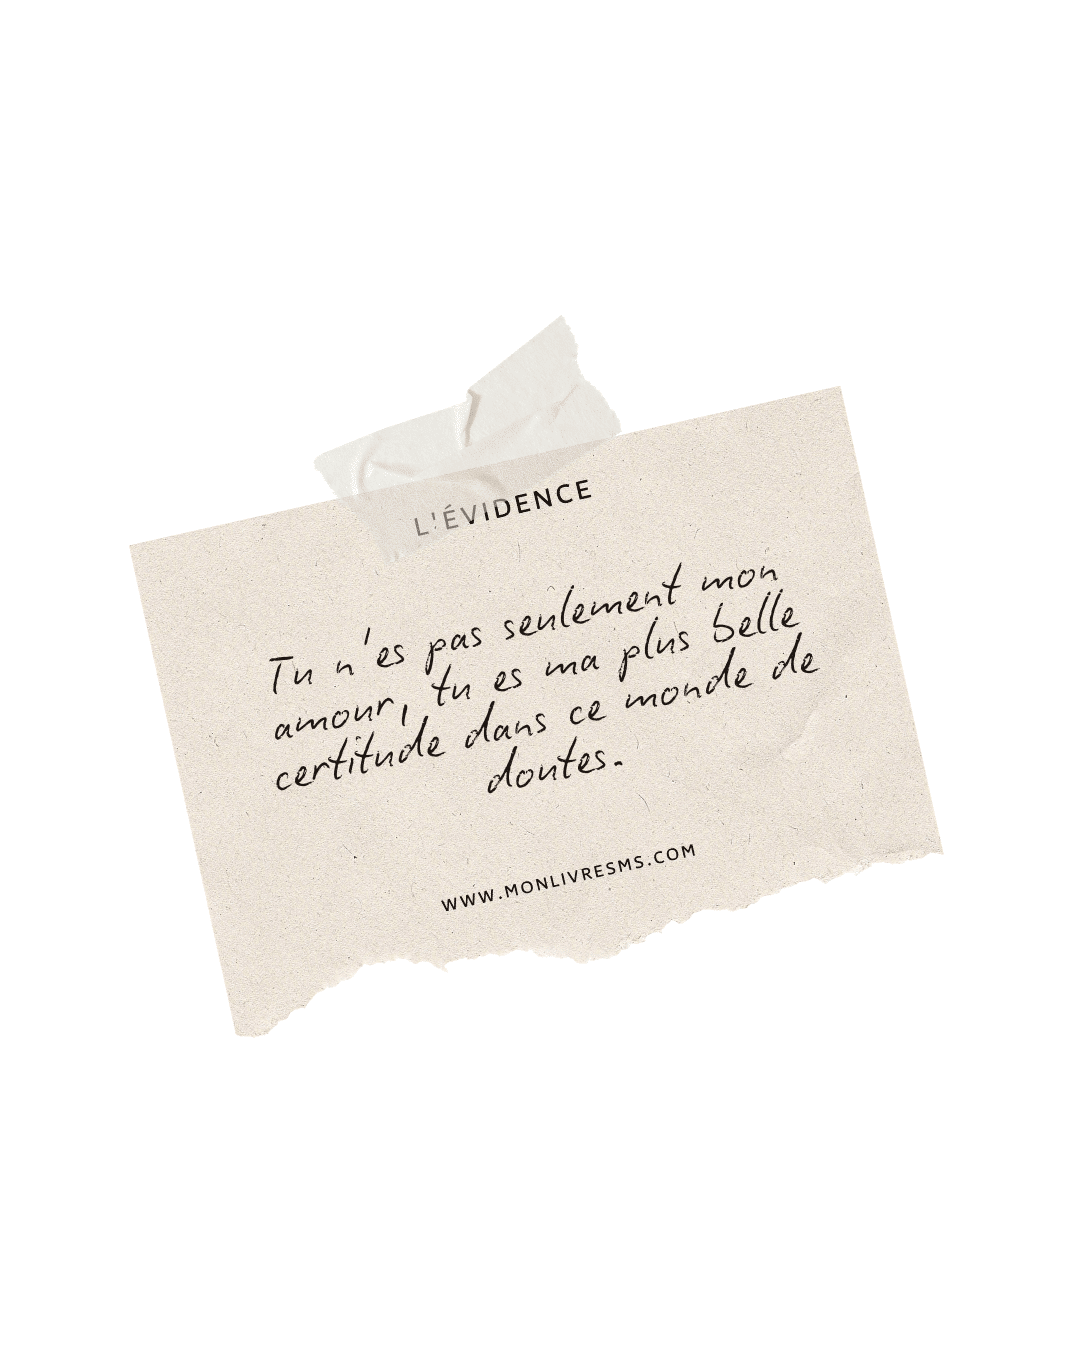 L'ÉVIDENCE
Tu n'es pas seulement mon
amour, tu es ma plus belle
certitude dans ce monde de
doutes.
WWW.MONLIVRESMS.COM